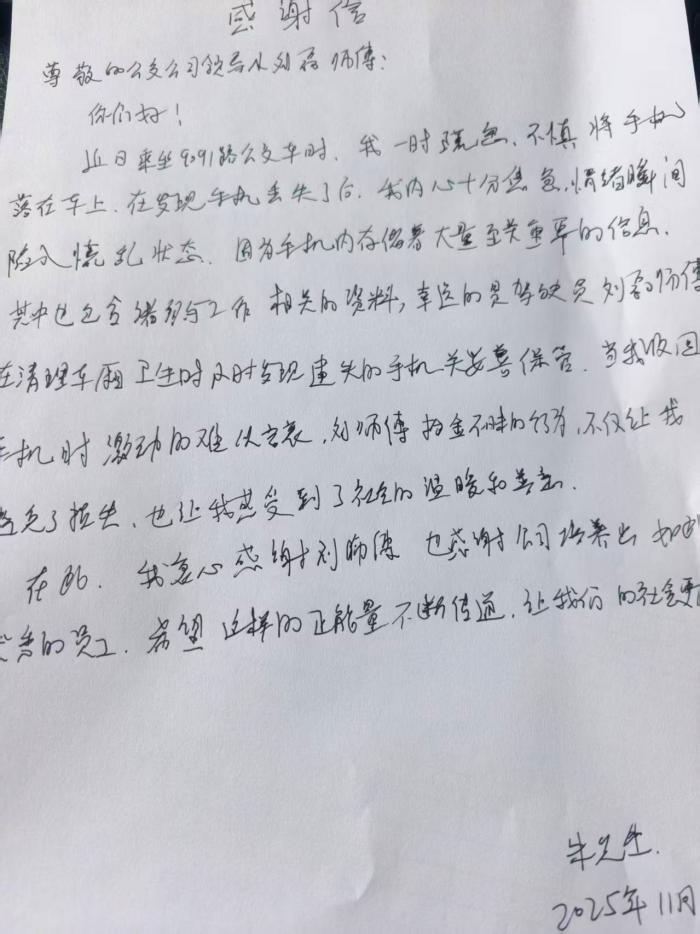 感谢信
尊敬的公交公司领导及刘磊师傅:
你们好!
近日乘坐9091路公交车时,我一时疏忽,不慎将手机
落在车上,在发现手机丢失了后,我内心十分焦急,情绪瞬间
陷入慌乱状态,因为手机内存储着大量至关重要的信息,
其中也包含诸多与工作相关的资料,幸运的是驾驶员刘磊师傅
在清理车厢卫生时及时发现遗失的手机并妥善保管。当我收回
手机时激动的难以言表,刘师傅拾金不昧的行为,不仅让我
避免了损失,也让我感受到了社会的温暖和善意。
在此,我衷心感谢刘师傅也感谢公司培养出如此
优秀的员工,希望这样的正能量不断传递,让我们的社会更
朱先生.
2025年11月